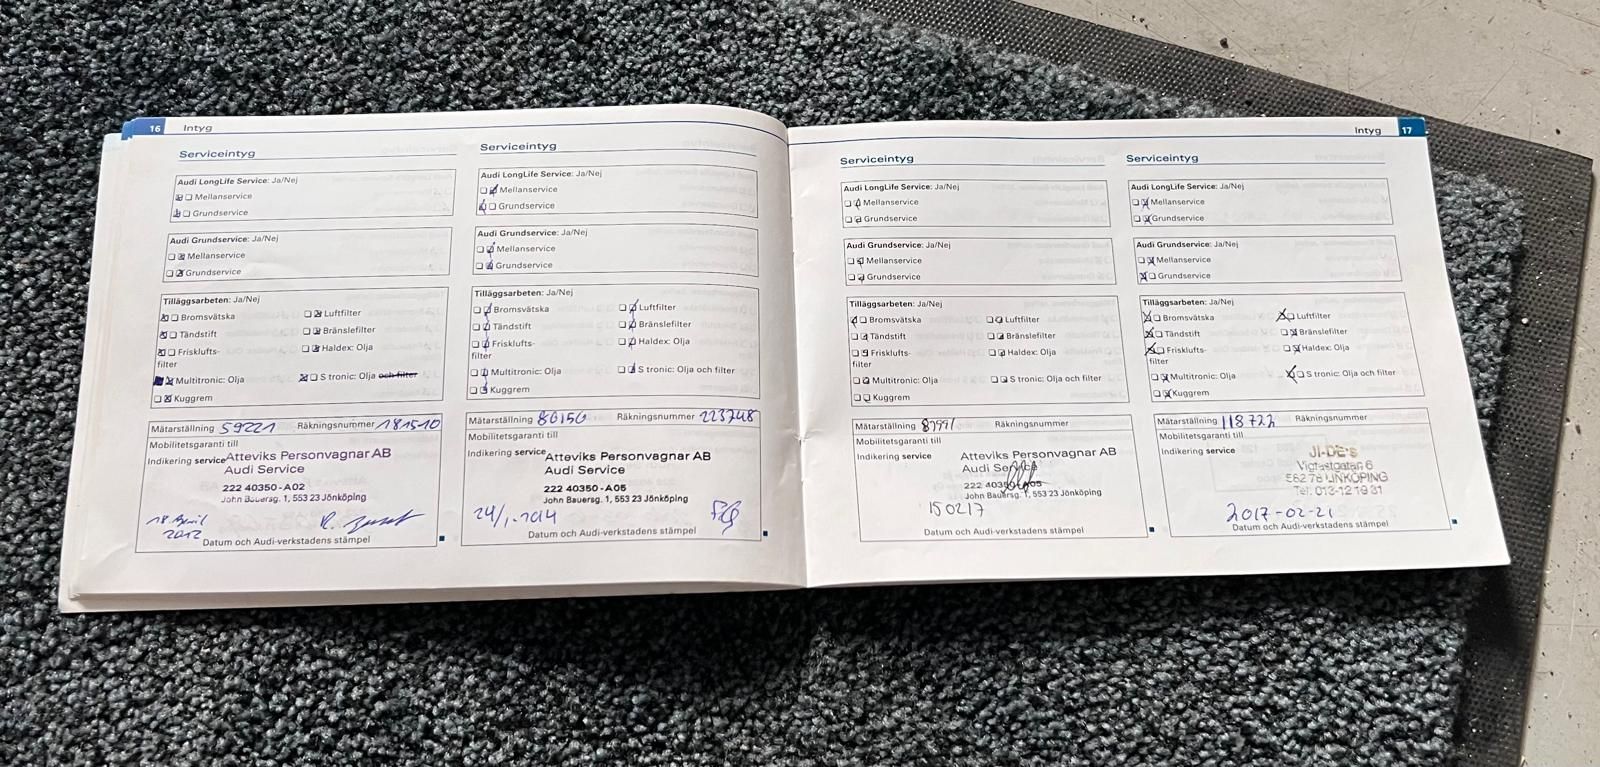 16 Intyg
Serviceintyg
Audi LongLife Service: Ja/Nej
Mellanservice
Grundservice
Audi Grundservice: Ja/Nej
Mellanservice
Grundservice
Tilläggsarbeten: Ja/Nej
Bromsvätska
Luftfilter
Tändstift
Bränslefilter
Frisklufts-
filter
Haldex: Olja
Multitronic: Olja
S tronic: Olja och filter
Kuggrem
Mätarställning 59221 Räkningsnummer 181510
Mobilitetsgaranti till
Indikering service
Atteviks Personvagnar AB
Audi Service
222 40350-A02
John Bauersg. 1, 553 23 Jönköping
18. April
2012
Datum och Audi-verkstadens stämpel
Serviceintyg
Audi LongLife Service: Ja/Nej
Mellanservice
Grundservice
Audi Grundservice: Ja/Nej
Mellanservice
Grundservice
Tilläggsarbeten: Ja/Nej
Bromsvätska
Luftfilter
Tändstift
Bränslefilter
Frisklufts-
filter
Haldex: Olja
Multitronic: Olja
S tronic: Olja och filter
Kuggrem
Mätarställning 80150 Räkningsnummer 223748
Mobilitetsgaranti till
Indikering service
Atteviks Personvagnar AB
Audi Service
222 40350-A05
John Bauersg. 1, 553 23 Jönköping
24/1-2014
Datum och Audi-verkstadens stämpel
Intyg 17
Serviceintyg
Audi LongLife Service: Ja/Nej
Mellanservice
Grundservice
Audi Grundservice: Ja/Nej
Mellanservice
Grundservice
Tilläggsarbeten: Ja/Nej
Bromsvätska
Luftfilter
Tändstift
Bränslefilter
Frisklufts-
filter
Haldex: Olja
Multitronic: Olja
S tronic: Olja och filter
Kuggrem
Mätarställning Räkningsnummer
Mobilitetsgaranti till
Indikering service
Atteviks Personvagnar AB
Audi Service
222 40350-A05
John Bauersg. 1, 553 23 Jönköping
150217
Datum och Audi-verkstadens stämpel
Serviceintyg
Audi LongLife Service: Ja/Nej
Mellanservice
Grundservice
Audi Grundservice: Ja/Nej
Mellanservice
Grundservice
Tilläggsarbeten: Ja/Nej
Bromsvätska
Luftfilter
Tändstift
Bränslefilter
Frisklufts-
filter
Haldex: Olja
Multitronic: Olja
S tronic: Olja och filter
Kuggrem
Mätarställning 118722 Räkningsnummer
Mobilitetsgaranti till
Indikering service
JI-DE's
Vigfastgatan 6
582 78 LINKÖPING
Tel. 013-12 19 31
2017-02-21
Datum och Audi-verkstadens stämpel